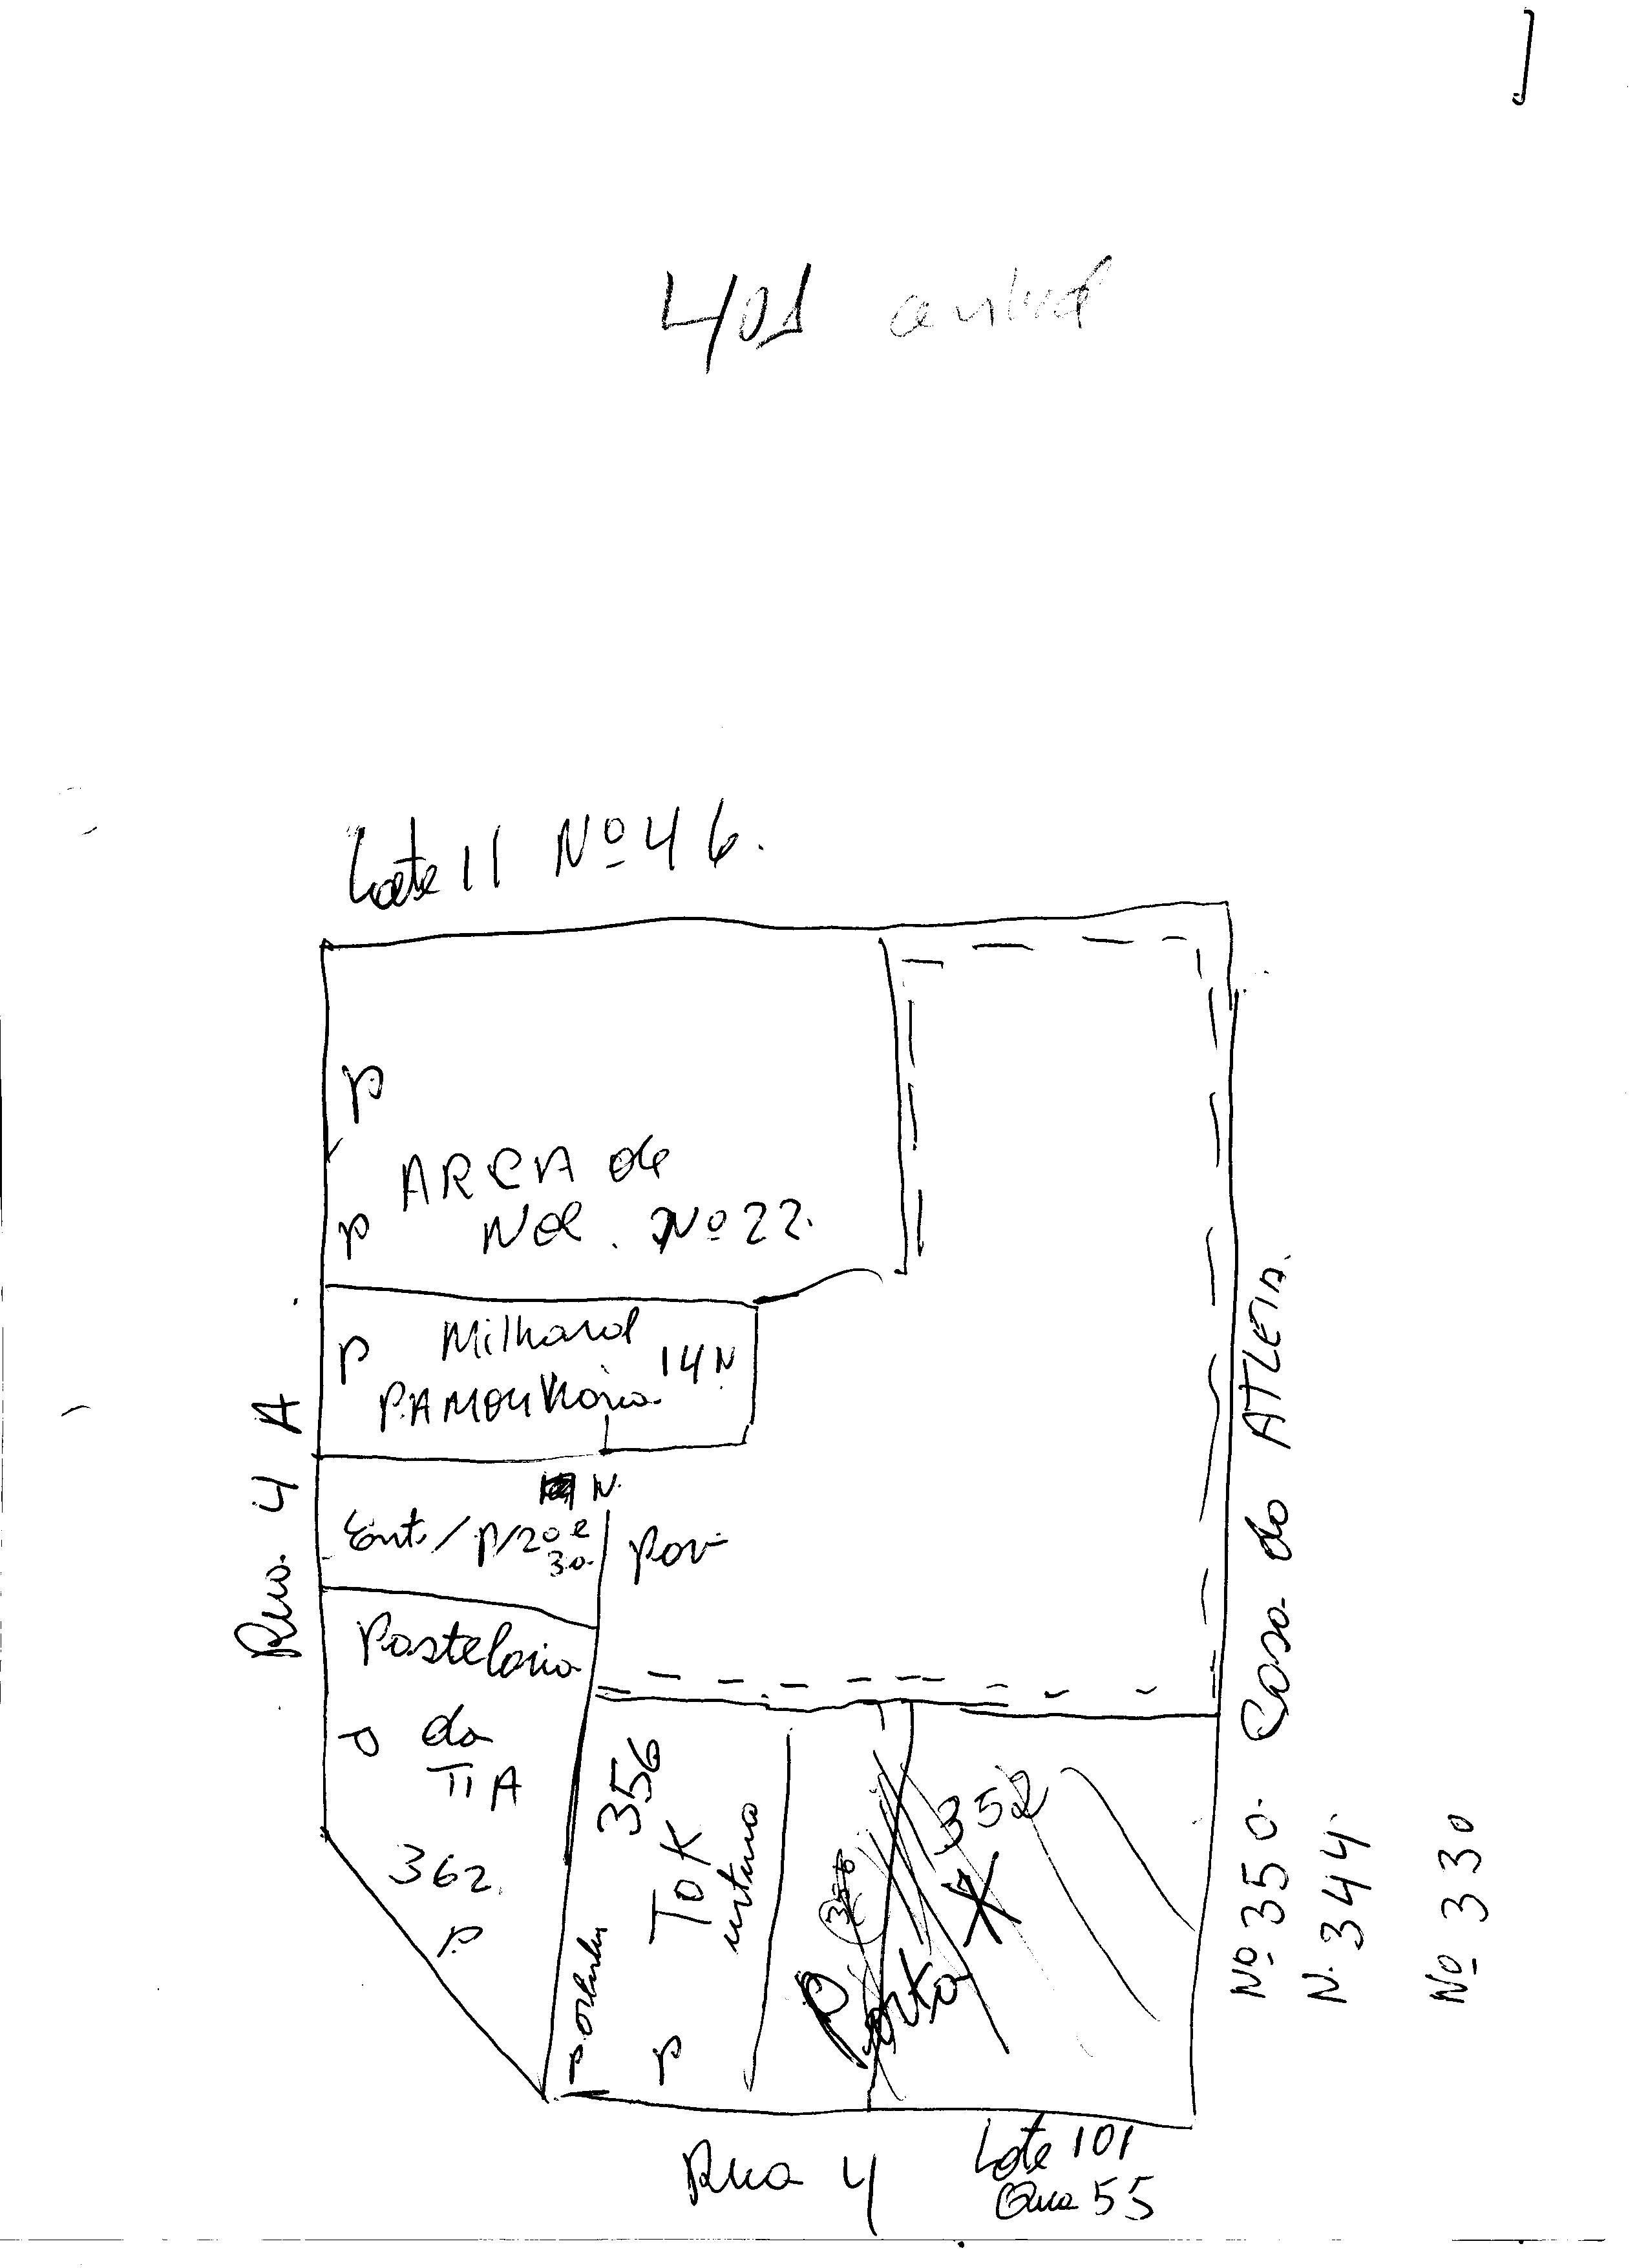 401 central
Lote 11 Nº 46.
P
AREA de
P
Noé. Nº 22.
P
Milharal
14 N
PAMONHARIA
N.
Ent. / P/ 2º e
3º
Pav
Pastelaria
P
da
TIA
362.
P
356
TOK
P
352
Porta
Rua 4 A
Casa do ATLETA.
Nº 350
N. 344
Nº 330
Rua 4
Lote 101
Qua 55